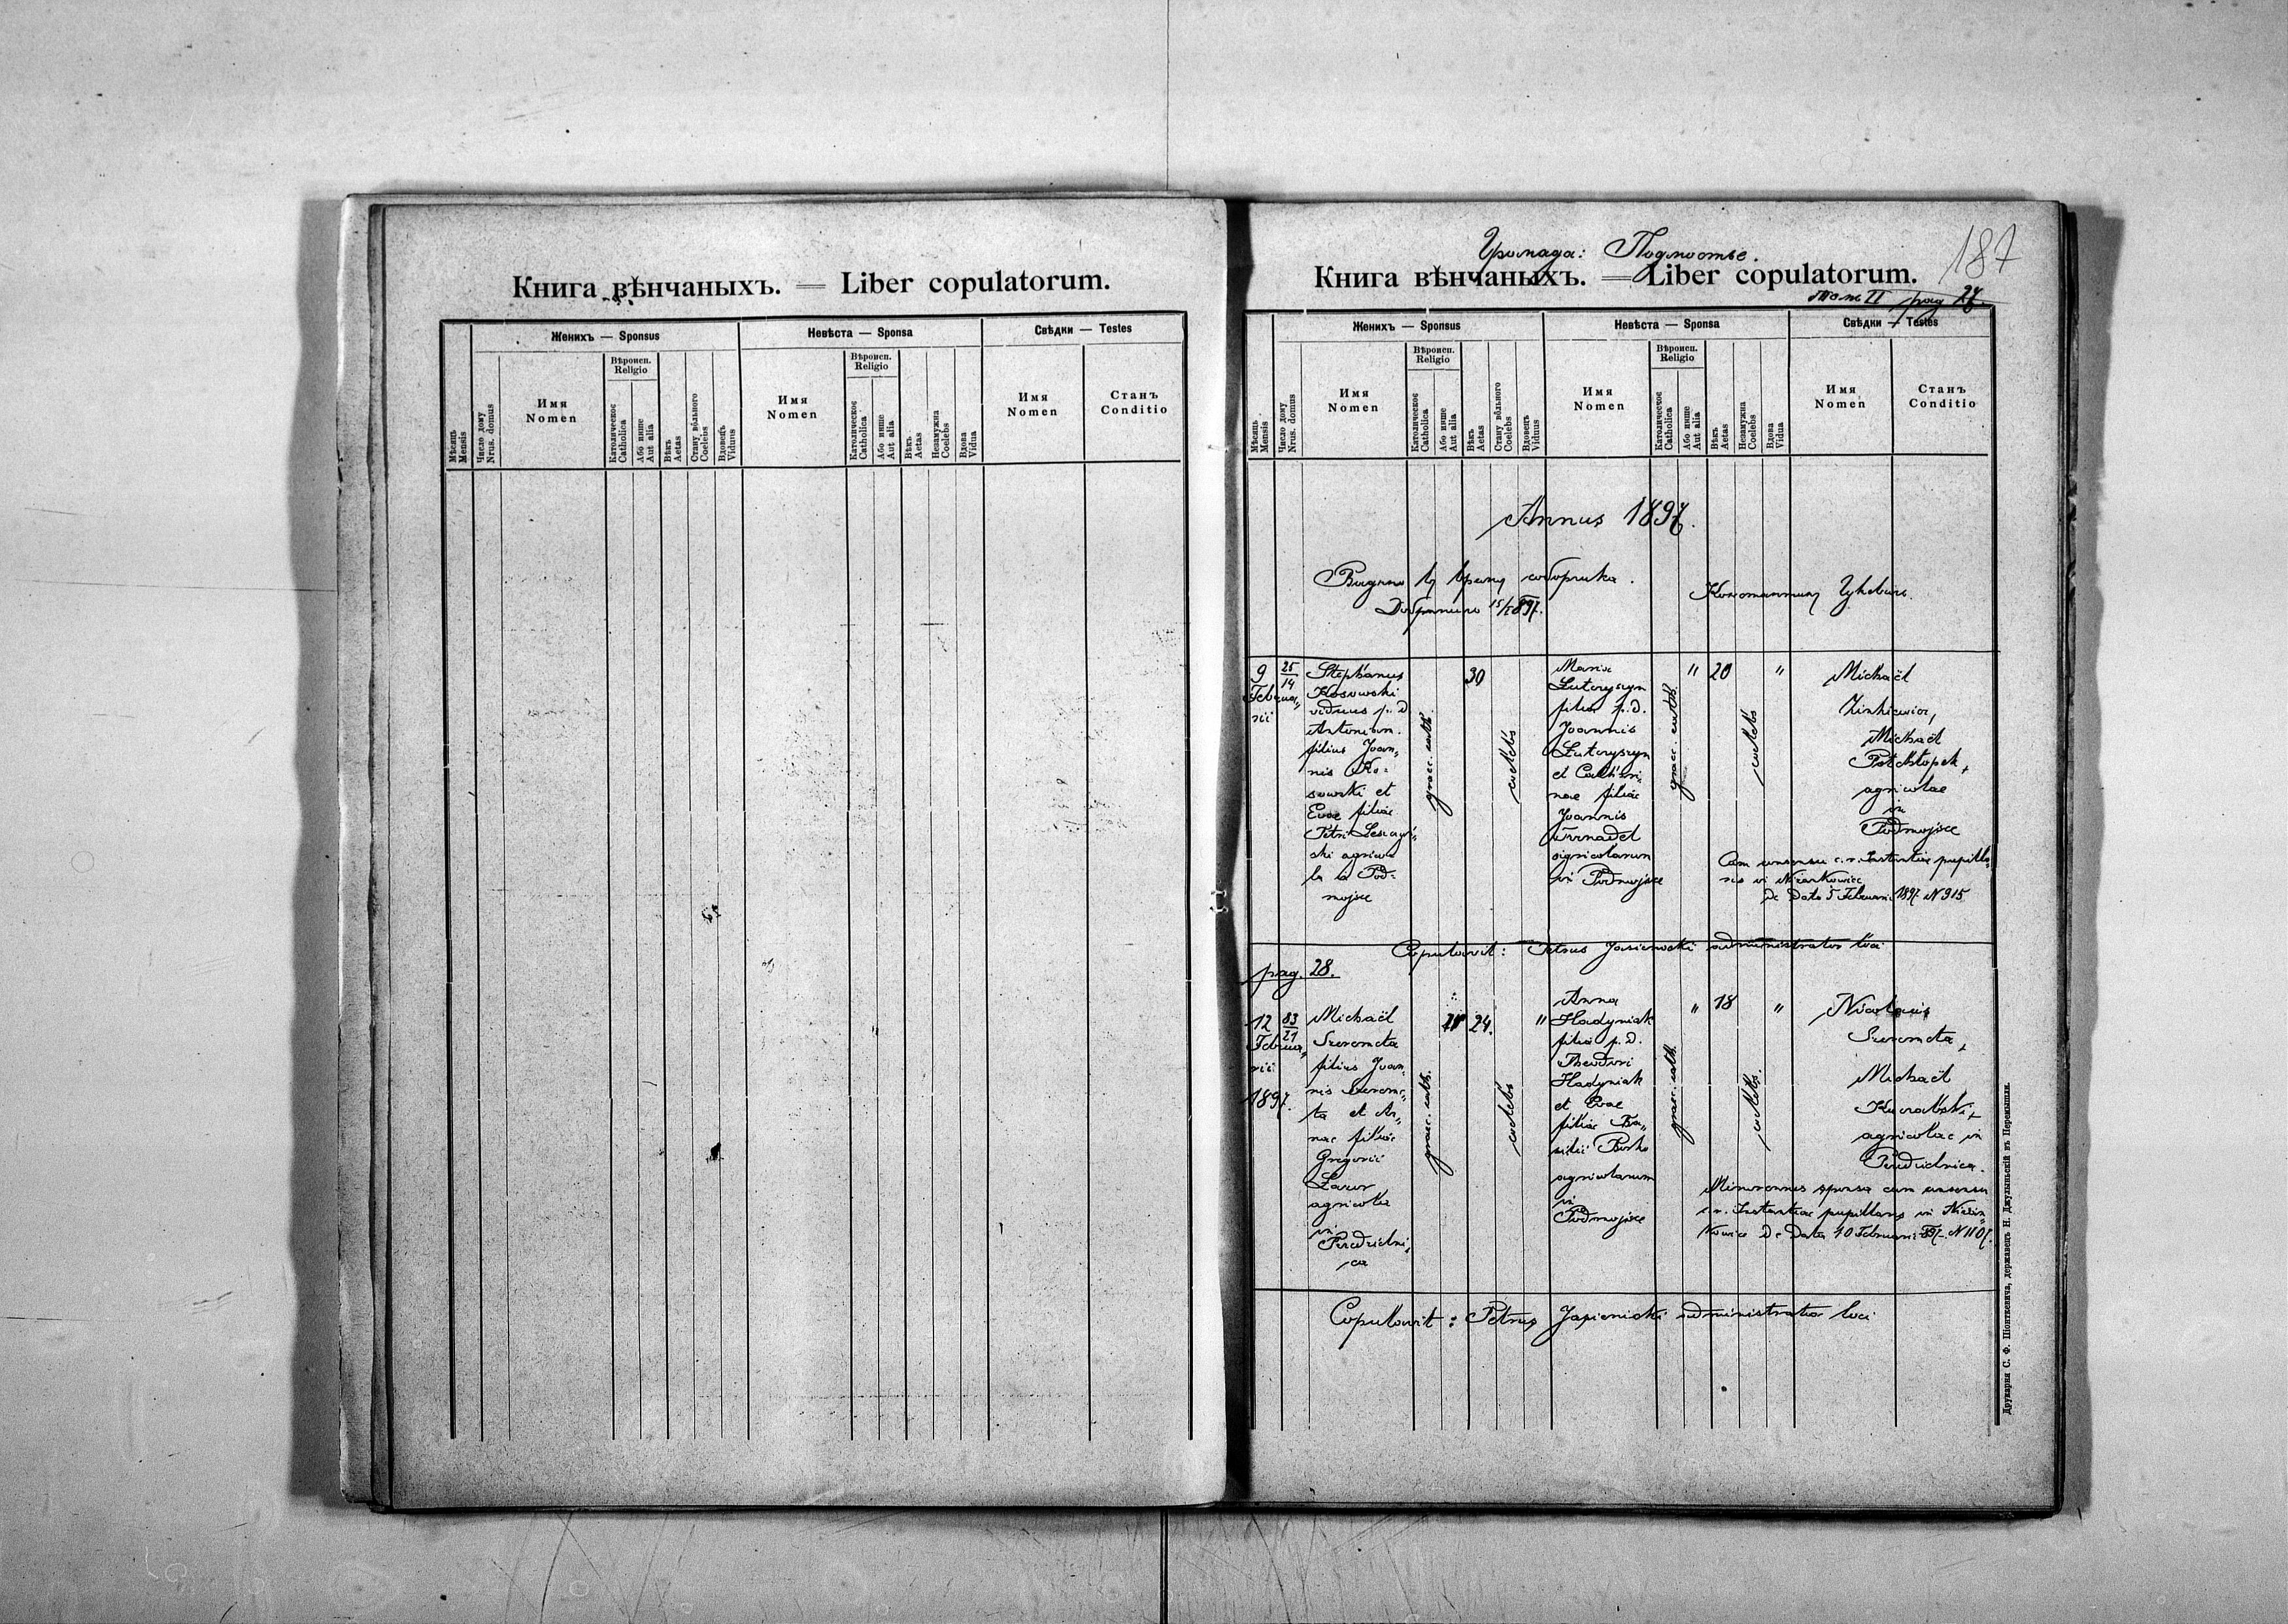 Книга вѣнчаныхъ. — Liber copulatorum.
Мѣсяць
Mensis
Число дому
Nrus. domus
Женихъ — Sponsus
Имя
Nomen
Вѣроисп.
Religio
Католическое
Catholica
Або инше
Aut alia
Вѣкъ
Aetas
Стану вôльного
Coelebs
Вдовецъ
Viduus
Невѣста — Sponsa
Имя
Nomen
Вѣроисп.
Religio
Католическое
Catholica
Або инше
Aut alia
Вѣкъ
Aetas
Незамужна
Coelebs
Вдова
Vidua
Свѣдки — Testes
Имя
Nomen
Станъ
Conditio
Громада:
187
Книга вѣнчаныхъ. — Liber copulatorum.
Томъ II pag 27.
Мѣсяць
Mensis
Число дому
Nrus. domus
Женихъ — Sponsus
Имя
Nomen
Вѣроисп.
Religio
Католическое
Catholica
Або инше
Aut alia
Вѣкъ
Aetas
Стану вôльного
Coelebs
Вдовецъ
Viduus
Невѣста — Sponsa
Имя
Nomen
Вѣроисп.
Religio
Католическое
Catholica
Або инше
Aut alia
Вѣкъ
Aetas
Незамужна
Coelebs
Вдова
Vidua
Свѣдки — Testes
Имя
Nomen
Станъ
Conditio
Annus 1897.
9
Februa„
rii
25
14
Stephanus
Kosowski
viduus p. d.
filius Joan„
nis Ko„
sowski et
Evae filiae
Petri
ski agrico
la in Pod„
mojsce
graec. cath.
30
coelebs
Maria
Lutczyszyn
filia p. d.
Joannis
Lutczyszyn
et Cathari„
nae filiae
Joannis
agricolarum
in Podmojsce
graec. cath.
"
20
coelebs
"
Michaël
Zinkiewicz,
Michaël
agricolae
in
Podmojsce
Cum consensu c. r. Instantiae pupilla„
ris in Nizankowice
de Dato 5 Februarii 1897 N 915
Copulavit: Petrus Jasienicki administrator loci
pag. 28.
12
Februa„
rii
1897.
83
21
Michaël
Szeremeta
filius Joan„
nis Szereme„
ta et An„
nae filiae
Gregorii
Lazor
agricola
in
Pozdziacz
graec. cath.
24.
coelebs
"
Anna
Hadyniak
filia p. d.
Theodori
Hadyniak
et Evae
filiae Ba„
silii
agricolarum
in
Podmojsce
graec. cath.
"
18
coelebs.
"
Nicolaus
Szeremeta,
Michaël
agricolae in
Minorennis sponsa cum consensu
c. r. Instantiae pupillaris in Nizan„
kowice de Dato 10 Februarii 897. N 1107.
Copulavit: Petrus Jasienicki administrator loci
Друкарня С. Ф. Піонткевича, державецъ Н. Джулыньскій въ Перемышли.